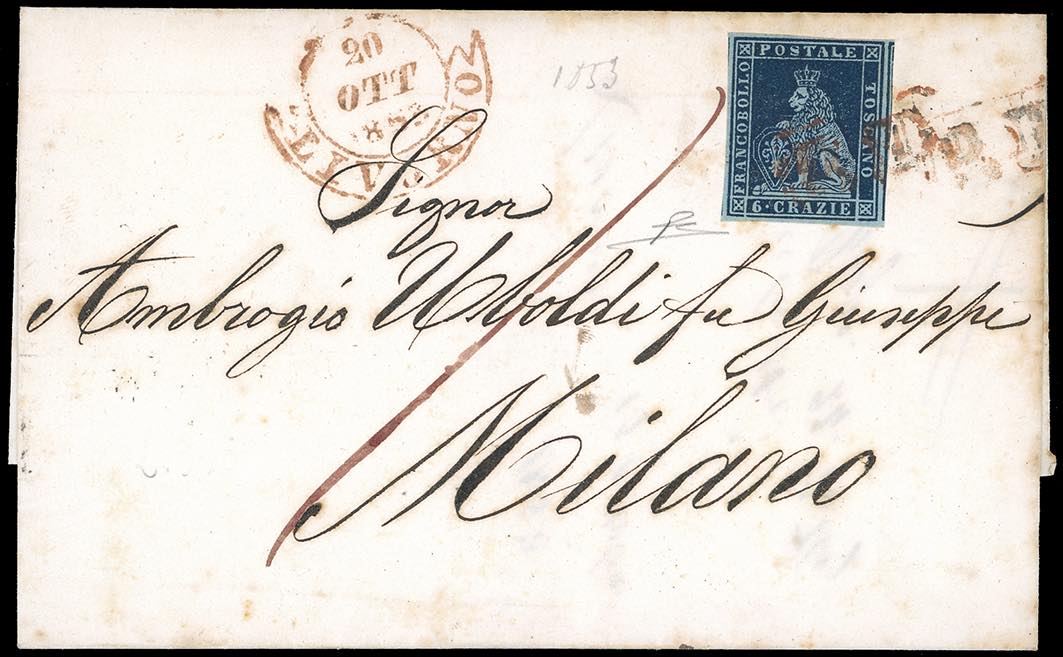 20
OTT
1853
FRANCOBOLLO
POSTALE
TOSCANO
6 · CRAZIE
Signor
Ambrogio Uboldi fu Giuseppe
Milano